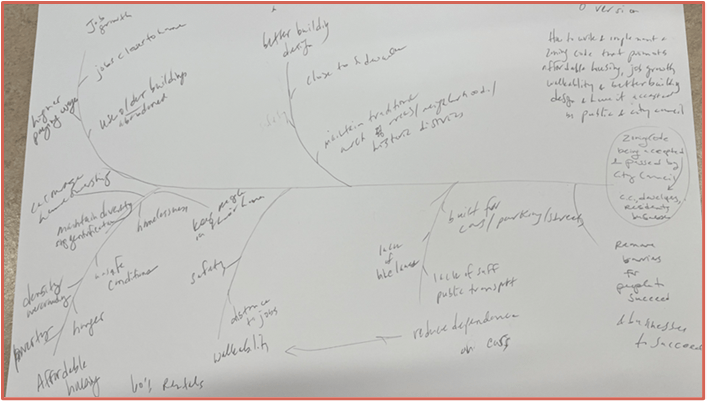 Job
growth
jobs closer to home
higher
paying wage
Use older buildings
abandoned
better building
design
close to sidewalk
maintain traditional
neighborhood/
historic districts
version
How to write & implement a
Zoning code that promotes
affordable housing, job growth
walkability & better building
design & have it accepted
to public & city council
Zoning Code
being accepted
& passed by
City Council
c.c., developers,
residents
businesses
encourage
homeownership
maintain diversity
homelessness
keep people
in their home
unsafe
conditions
density
overcrowding
poverty
hunger
Affordable
housing
60's Rentals
safety
distance
to jobs
walkability
built for
cars/parking/streets
lack of
bike lanes
lack of suff
public transport
reduce dependence
on cars
Remove
barriers
for
people to
succeed
& businesses
to succeed